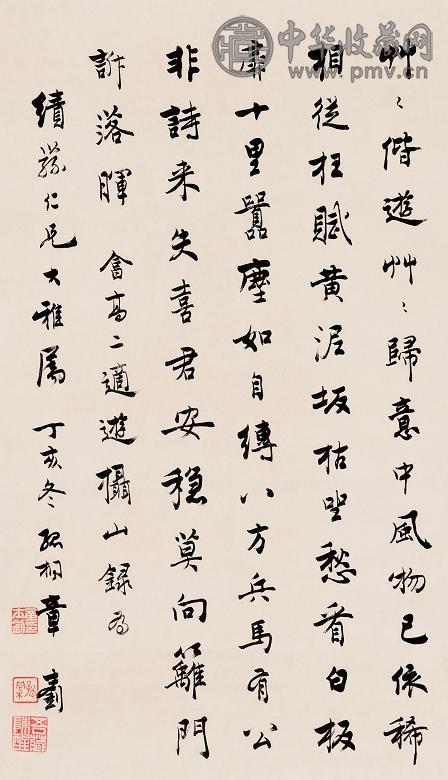 中华收藏网
www.pmv.cn
艸〻偕遊艸〻歸意中風物已依稀
相從枉賦黄泥坂枯坐愁看白板
扉十里囂塵如自縛八方兵馬有公
非詩来失喜君安穩莫向籬門
訴落暉 畣高二適遊攝山録為
續蓀仁兄大雅屬 丁亥冬孤桐章士釗